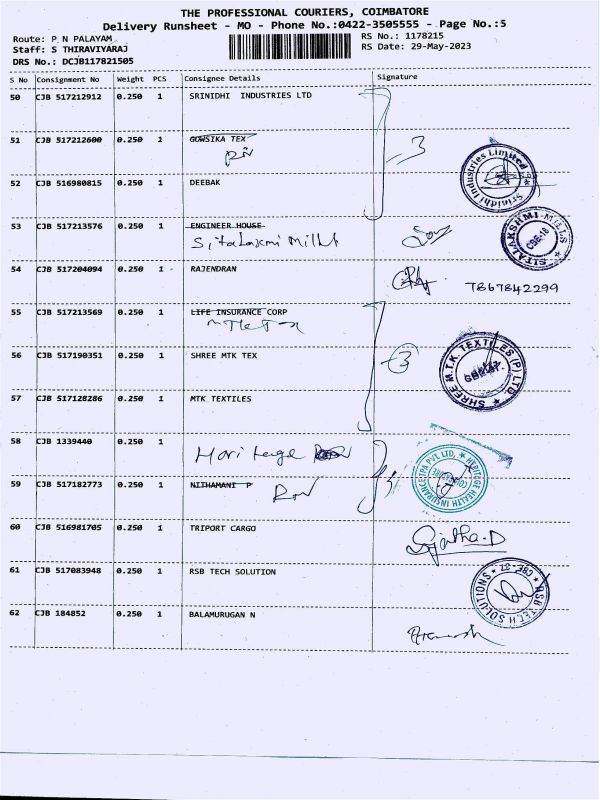 THE PROFESSIONAL COURIERS, COIMBATORE
Delivery Runsheet - MO - Phone No.:0422-3505555 - Page No.:5
Route: P N PALAYAM
RS No.: 1178215
Staff: S THIRAVIYARAJ
RS Date: 29-May-2023
DRS No.: DCJB117821505
S No Consignment No Weight PCS Consignee Details Signature
50 CJB 517212912 0.250 1 SRINIDHI INDUSTRIES LTD
51 CJB 517212600 0.250 1 GOWSIKA TEX
3
Srinidhi Industries Limited
52 CJB 516980815 0.250 1 DEEBAK
53 CJB 517213576 0.250 1 ENGINEER HOUSE
SITALAKSHMI MILLS
CBE-18
54 CJB 517204094 0.250 1 RAJENDRAN
7867842299
55 CJB 517213569 0.250 1 LIFE INSURANCE CORP
56 CJB 517190351 0.250 1 SHREE MTK TEX
3
SHREE M.T.K. TEXTILES (P) LTD
57 CJB 517128286 0.250 1 MTK TEXTILES
58 CJB 1339440 0.250 1
Heritage
HERITAGE HEALTH INSURANCE TPA PVT. LTD,
59 CJB 517182773 0.250 1 NITHAMANI P
60 CJB 516981705 0.250 1 TRIPORT CARGO
Sujatha.D
61 CJB 517083948 0.250 1 RSB TECH SOLUTION
RSB TECH SOLUTIONS
CBE-37
62 CJB 184852 0.250 1 BALAMURUGAN N